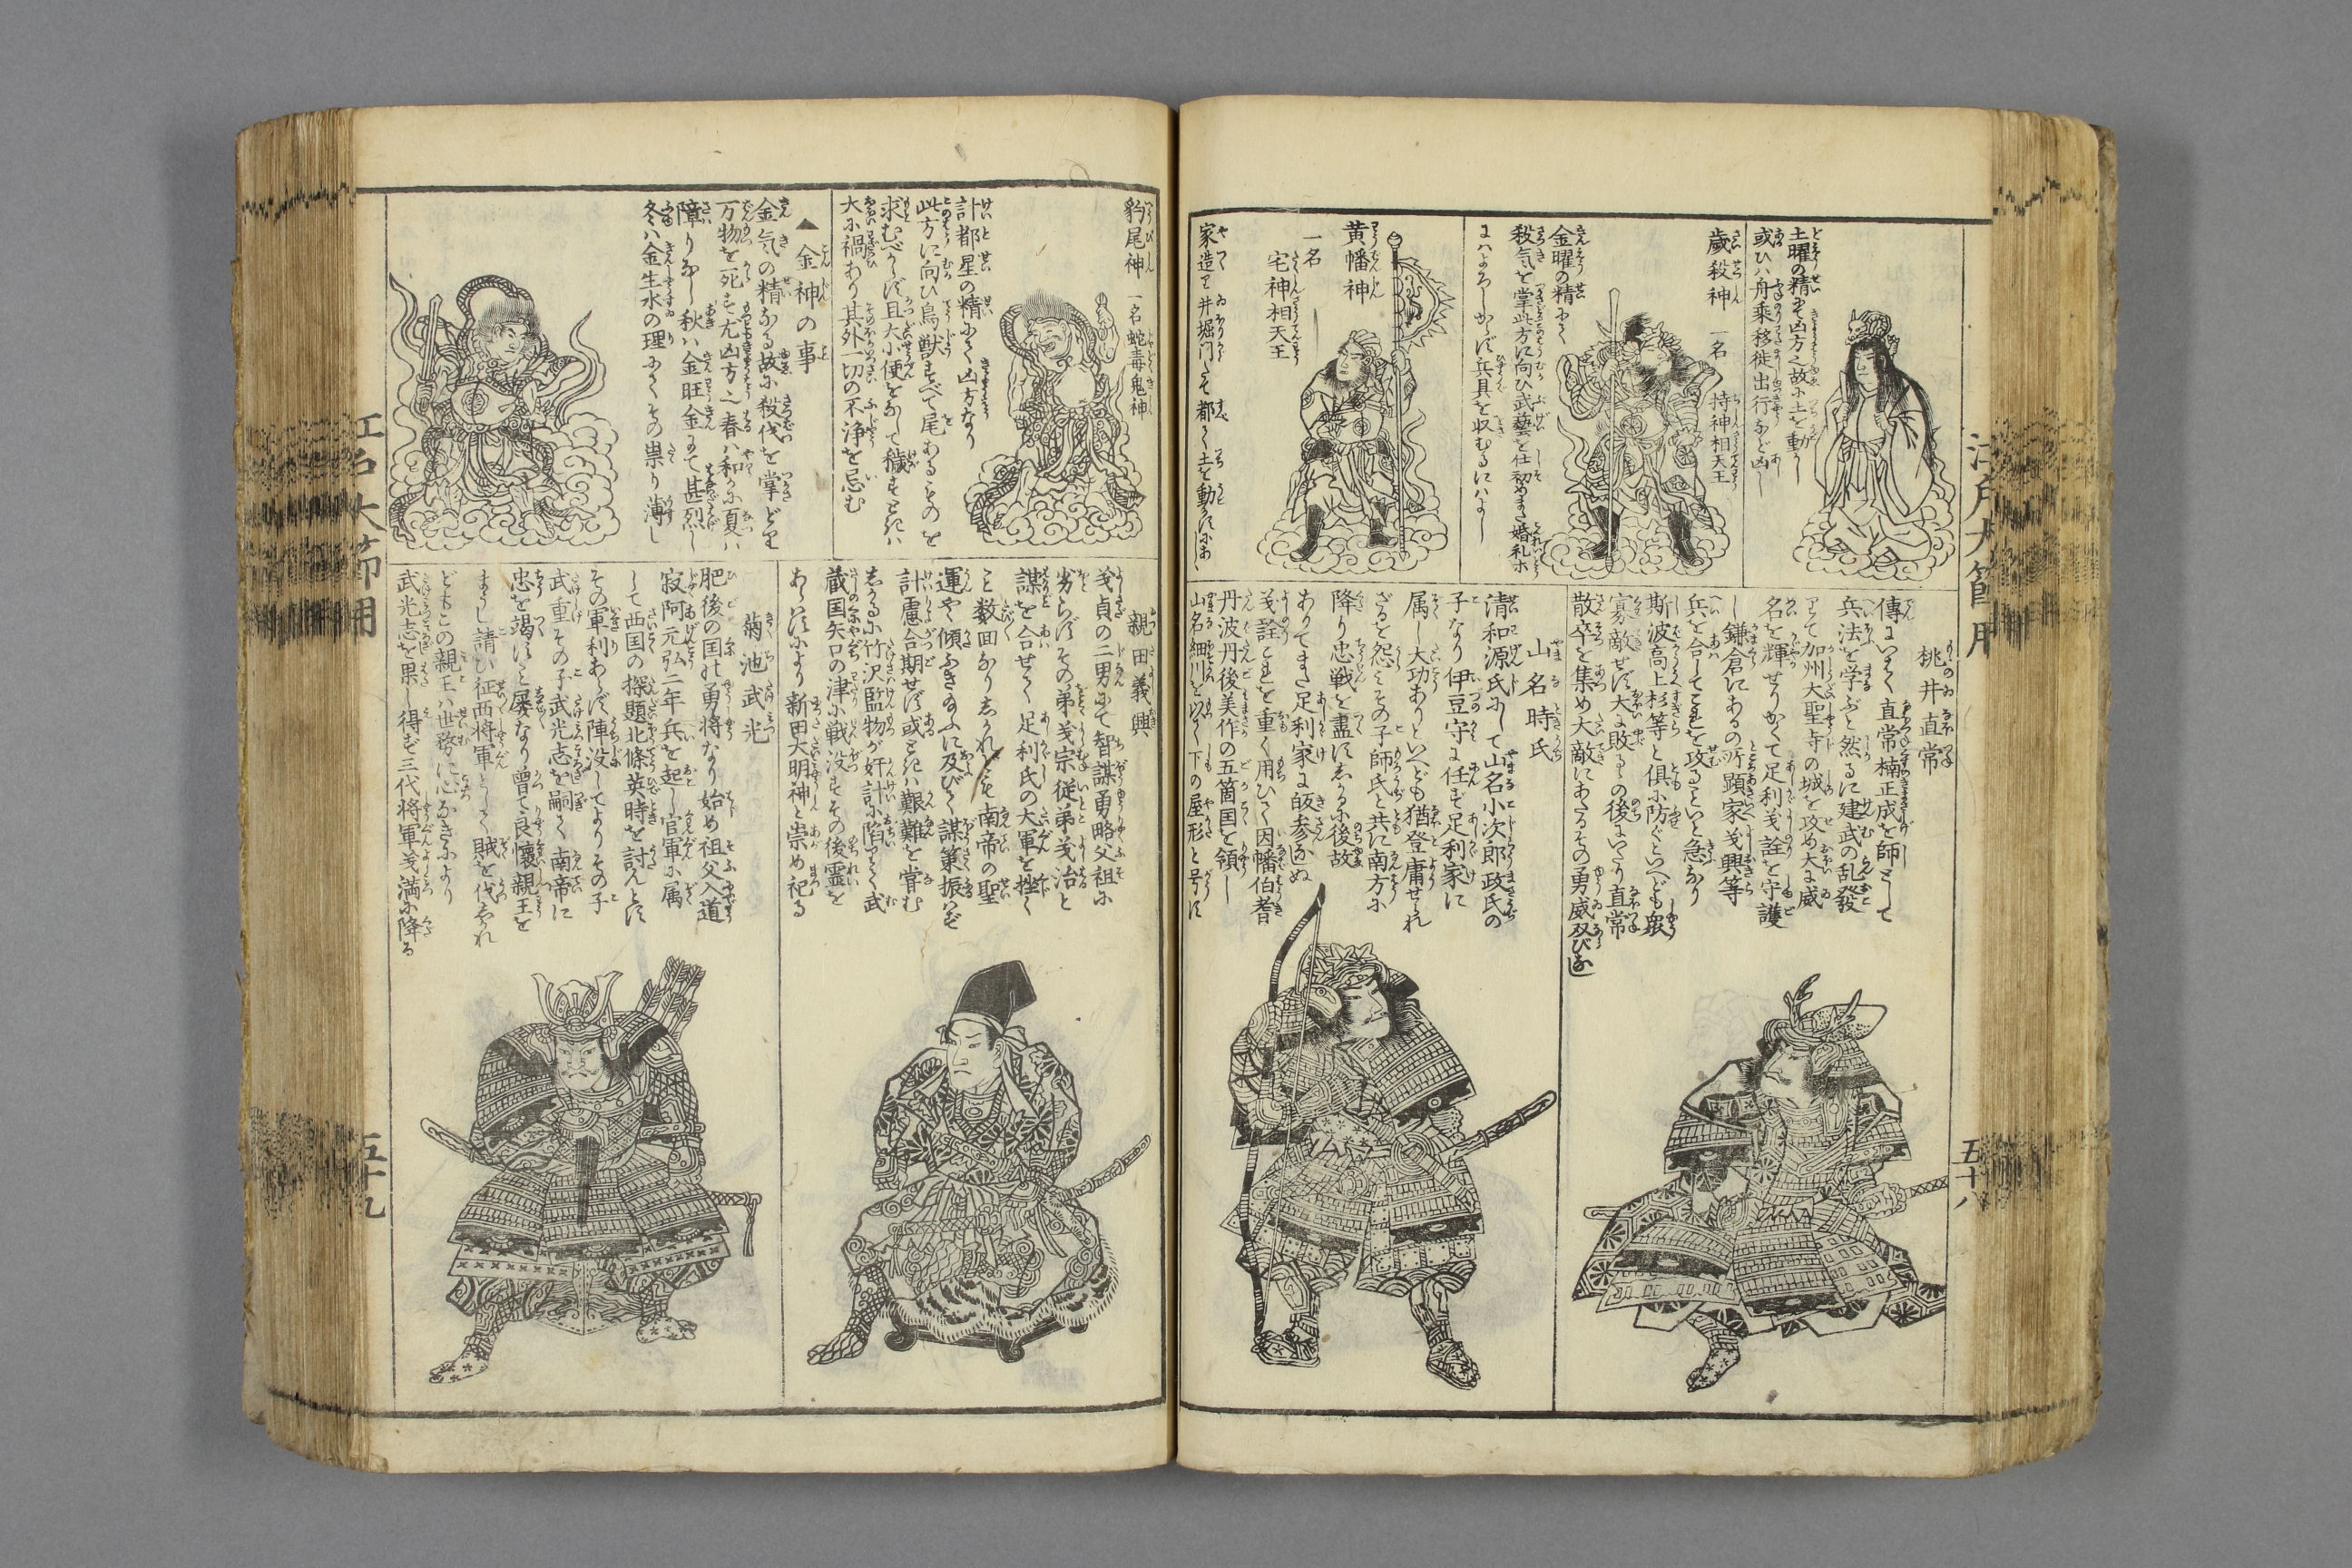 土曜の精にて凶方之故に土を動し
或ひハ舟乗移徙出行など凶し
歳殺神
一名
持神相天王
金曜の精にて
殺気を掌此方に向ひ武藝を仕初めまた婚礼ホ
にハよろしからず兵具を収むるにハよし
黄幡神
一名
宅神相天王
家造り井堀門たて都て土を動すにあし
桃井直常
傳にいはく直常楠正成を師として
兵法を学ぶと然るに建武の乱發
りて加州大聖寺の城を攻め大に威
名を輝せりかくて足利義詮を守護
し鎌倉にあるの所顕家義興等
兵を合してこれを攻るといと急なり
斯波高上杉等と倶に防ぐといへども衆
寡敵せず大に敗るその後にいたり直常
散卒を集め大敵にあたるその勇威双びなし
山名時氏
清和源氏にして山名小次郎政氏の
子なり伊豆守に任ず足利家に
属し大功ありといへども猶登庸せられ
ざるを怨ミその子師氏と共に南方に
降り忠戦を盡すしかるに後故
ありてまた足利家に皈参なしぬ
義詮これを重く用ひて因幡伯耆
丹波丹後美作の五箇国を領し
山名細川を以て下の屋形と号す
江戸大節用
五十八
豹尾神
一名蛇毒鬼神
計都星の精にて凶方なり
此方に向ひ鳥獣すべて尾あるものを
求むべからず且大小便をなして穢すときハ
大に禍あり其外一切の不浄を忌む
▲金神の事
金気の精なる故に殺伐を掌どり
万物を死す尤凶方之春ハ和かに夏ハ
障りなし秋ハ金旺金にて甚烈し
冬ハ金生水の理にてその祟り薄し
親田義興
義貞の二男にて智謀勇略父祖に
劣らずその弟義宗従弟義治と
謀を合せて足利氏の大軍を挫く
こと数回なりしかれども南帝の聖
運や傾ふきなふに及びて謀策振ハず
計慮合期せず或ときハ艱難を嘗む
しかるに竹沢監物が奸計に陥りて武
蔵国矢口の津に戦没すその後霊を
あらハすにより新田大明神と崇め祀る
菊池武光
肥後の国の勇将なり始め祖父入道
寂阿元弘二年兵を起し官軍に属
して西国の探題北條英時を討んとす
その軍利あらず陣没してよりその子
武重その子武光志を嗣て南帝に
忠を竭すこと屡なり曽て良懐親王を
まうし請ひ征西将軍として賊を伐しがれ
どもこの親王ハ世務に心なきにより
武光志を果し得ず三代将軍義満に降る
江戸大節用
五十九